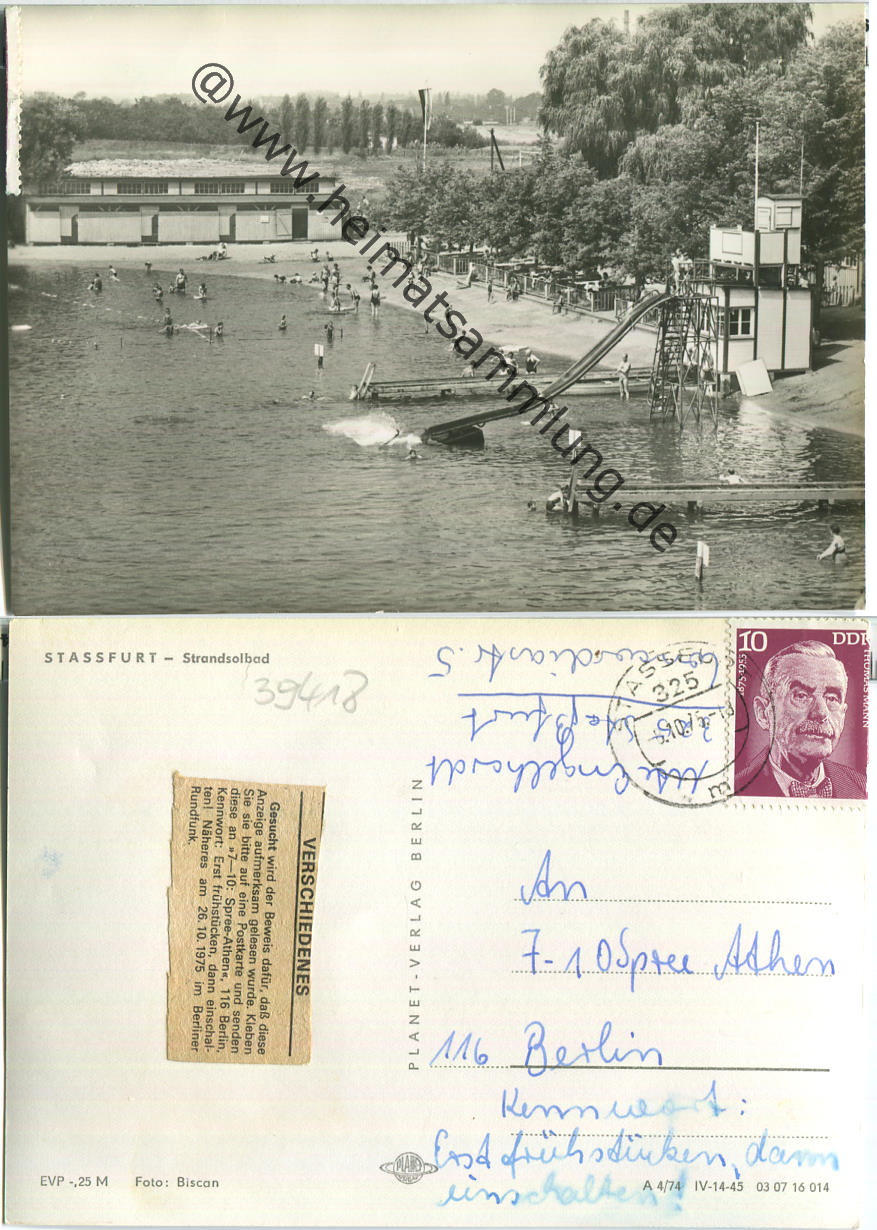 @www.heimatsammlung.de
STASSFURT – Strandsolbad
39418
VERSCHIEDENES
Gesucht wird der Beweis dafür, daß diese
Anzeige aufmerksam gelesen wurde. Kleben
Sie sie bitte auf eine Postkarte und senden
diese an »7—10: Spree-Athen«, 116 Berlin,
Kennwort: Erst frühstücken, dann einschal-
ten! Näheres am 26. 10. 1975 im Berliner
Rundfunk.
PLANET-VERLAG BERLIN
Engelhardt
325 Staßfurt
5
STASSFURT
325
m
10
DDR
THOMAS MANN
1875-1955
An
7-10 Spree Athen
116 Berlin
Kennwort:
Erst frühstücken, dann
einschalten!
PLANET
VERLAG
EVP -,25 M Foto: Biscan
A 4/74 IV-14-45 03 07 16 014